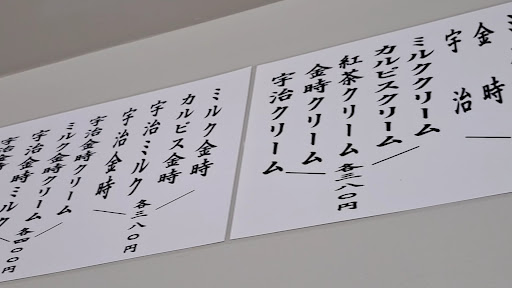 金時
宇治
ミルククリーム
カルピスクリーム
紅茶クリーム各三八〇円
金時クリーム
宇治クリーム
ミルク金時
カルピス金時
宇治ミルク各三八〇円
宇治金時
宇治金時クリーム
ミルク金時クリーム
宇治金時ミルク各四〇〇円
宇治金時